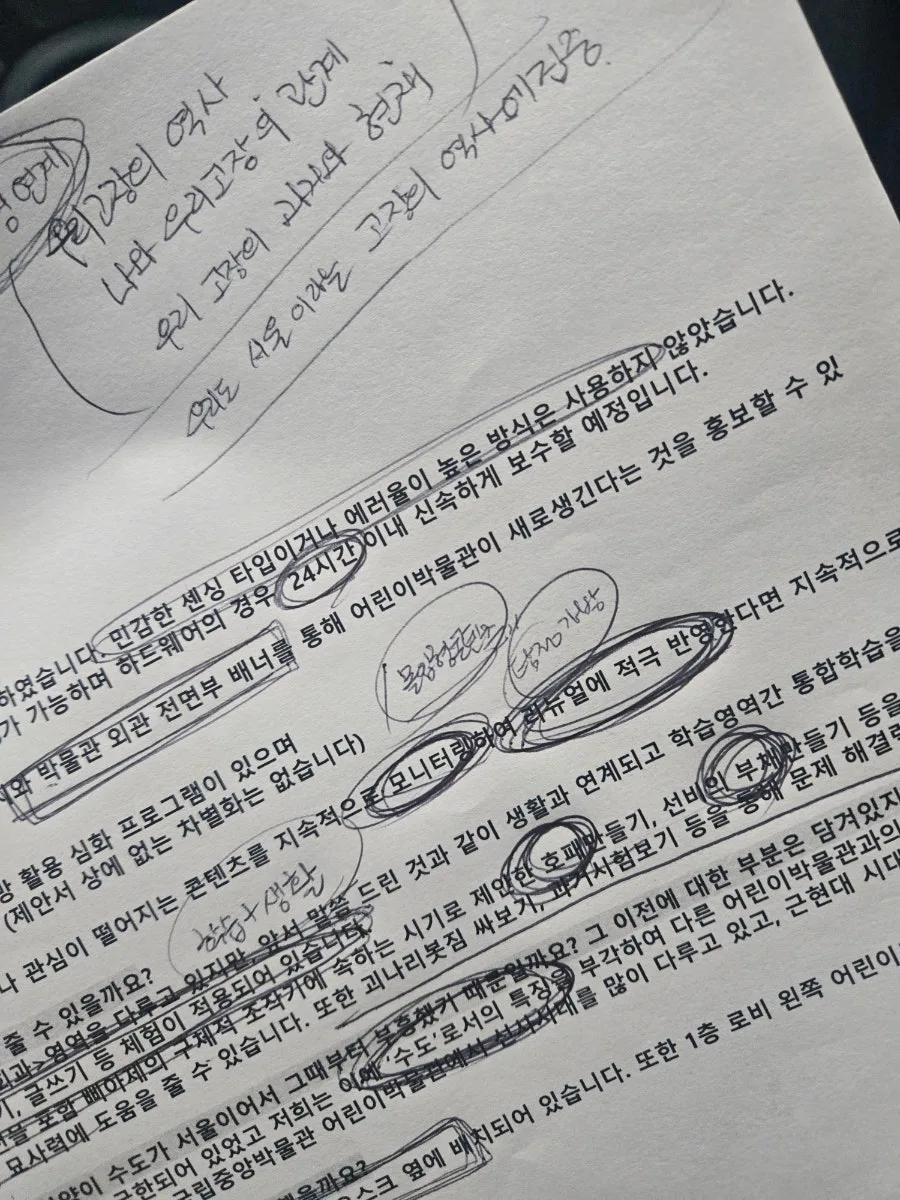 연계
우리고장의 역사
나와 우리고장의 관계
우리 고장의 과거와 현재
우리도 서울이라는 고장의 역사에 집중.
하였습니다. 민감한 센싱 타입이거나 에러율이 높은 방식은 사용하지 않았습니다.
가 가능하며 하드웨어의 경우 24시간 이내 신속하게 보수할 예정입니다.
와 박물관 외관 전면부 배너를 통해 어린이박물관이 새로생긴다는 것을 홍보할 수 있
활용 심화 프로그램이 있으며
(제안서 상에 없는 차별화는 없습니다)
나 관심이 떨어지는 콘텐츠를 지속적으로 모니터링하여 리뉴얼에 적극 반영한다면 지속적으로
학습+생활
줄 수 있을까요?
영역을 다루고 있지만 앞서 말씀 드린 것과 같이 생활과 연계되고 학습영역간 통합학습을
기, 글쓰기 등 체험이 적용되어 있습니다.
포함 삐아제의 구체적 조작기에 속하는 시기로 제안한 호패만들기, 선비의 부채만들기 등을
묘사력에 도움을 줄 수 있습니다. 또한 괴나리봇짐 싸보기, 과거시험보기 등을 통해 문제 해결력
이 수도가 서울이어서 그때부터 부흥했기 때문일까요? 그 이전에 대한 부분은 담겨있지
되어 있었고 저희는 이에 '수도'로서의 특징을 부각하여 다른 어린이박물관과의
국립중앙박물관 어린이박물관에서 선사시대를 많이 다루고 있고, 근현대 시대
을까요?
옆에 배치되어 있습니다. 또한 1층 로비 왼쪽 어린이